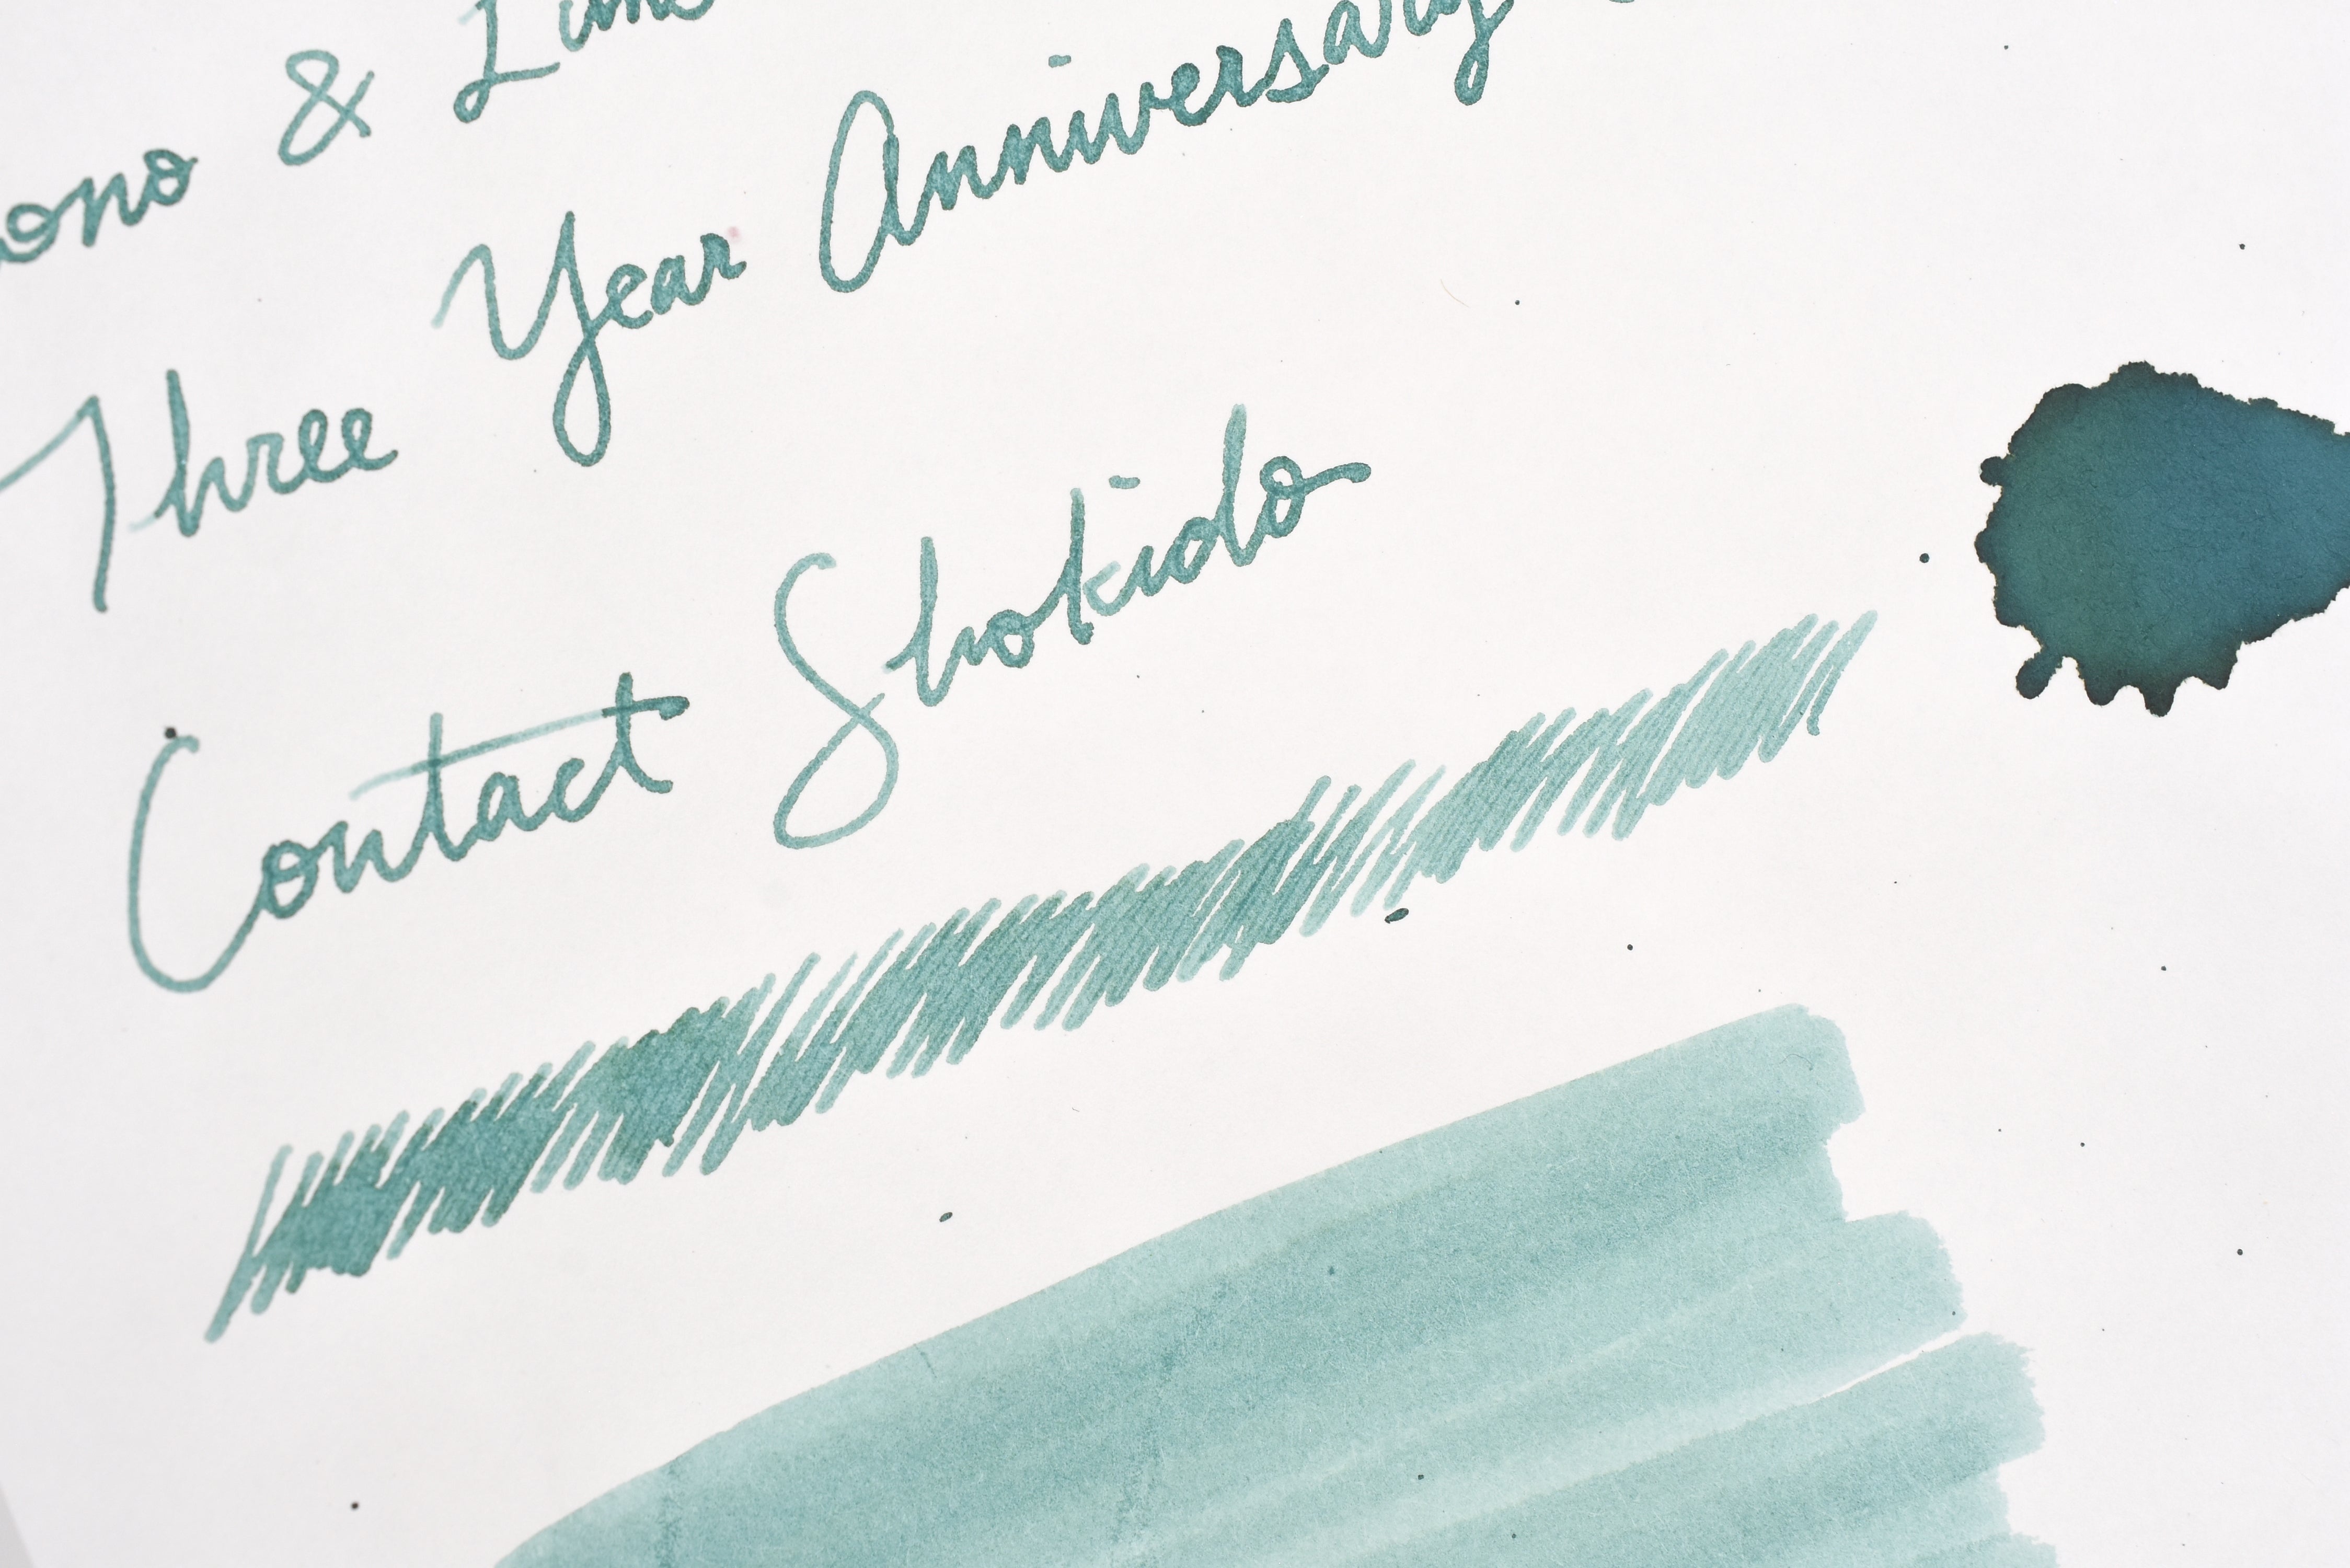 &
Three Year Anniversary
Contact Shokido